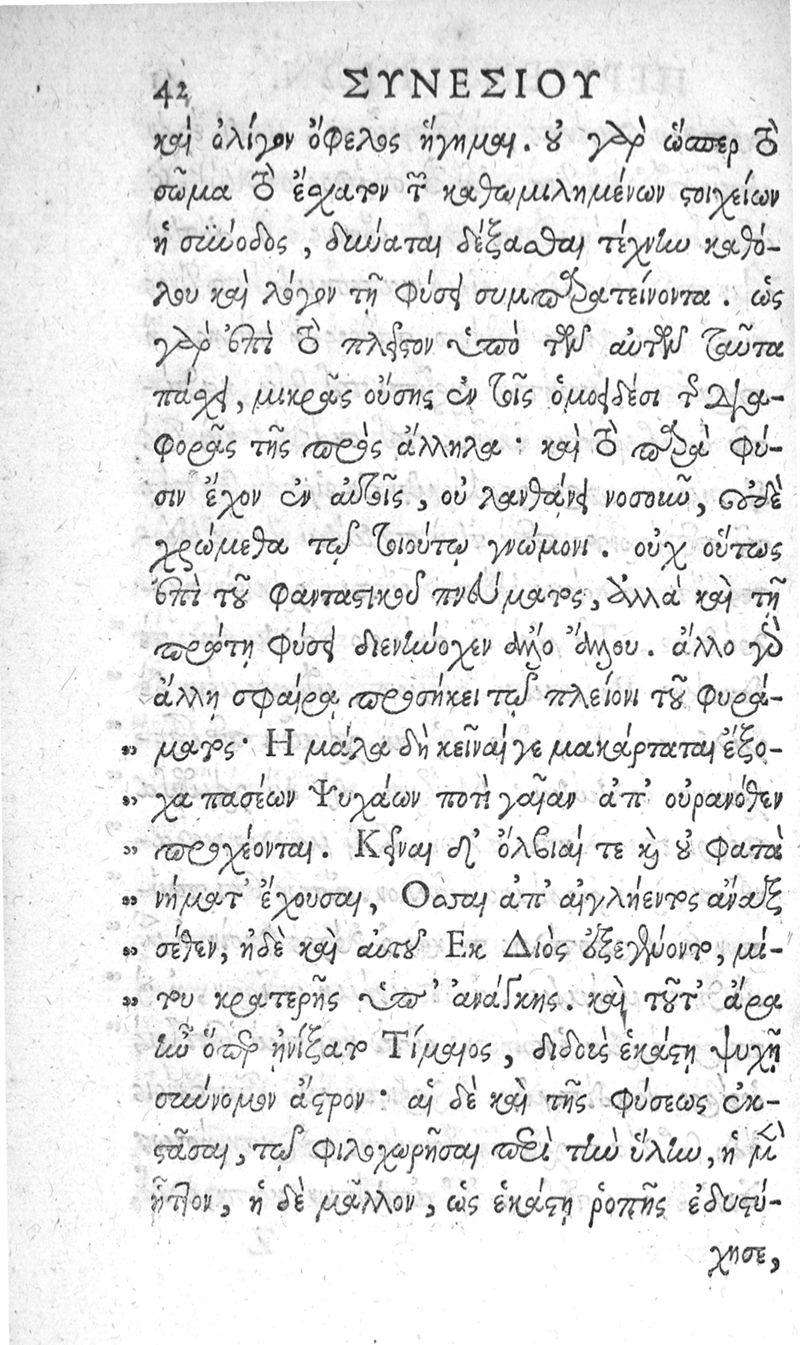 42 ΣΥΝΕΣΙΟΥ
καὶ ὀλίγον ὄφελος ἥγημαι. οὐ γὰρ ὥσπερ τὸ
σῶμα τὸ ἔσχατον τῶν καθωμιλημένων στοιχείων
ἡ σύνοδος, δύναται δέξασθαι τέχνην καθό-
λου καὶ λόγον τῇ φύσει συμπαρατείνοντα. ὡς
γὰρ ἐπὶ τὸ πλεῖστον ὑπὸ τῶν αὐτῶν ταῦτα
πάσχει, μικρᾶς οὔσης ἐν τοῖς ὁμοειδέσι τῆς δια-
φορᾶς τῆς πρὸς ἄλληλα· καὶ τὸ παρὰ φύ-
σιν ἔχον ἐν αὐτοῖς, οὐ λανθάνει νοσοκοῦν, οὐδὲ
χρώμεθα τῷ τοιούτῳ γνώμονι. οὐχ οὕτως
ἐπὶ τοῦ φανταστικοῦ πνεύματος, ἀλλὰ καὶ τῇ
πρώτῃ φύσει διενήνοχεν ἄλλο ἄλλου. ἄλλο γὰρ
ἄλλῃ σφαίρᾳ προσήκει τῷ πλείονι τοῦ φυρά-
„ ματος· Η μάλα δὴ κεῖναί γε μακάρταται ἔξο-
„ χα πασέων Ψυχάων ποτὶ γαῖαν ἀπ' οὐρανόθεν
„ προχέονται. Κεῖναι δ' ὄλβιαί τε καὶ οὐ φατὰ
„ νήματ' ἔχουσαι, Οσσαι ἀπ' αἰγλήεντος ἄναξ
„ σέθεν, ἠδὲ καὶ αὐτοῦ Εκ Διὸς ἐξεγένοντο, μί-
„ του κρατερῆς ὑπ' ἀνάγκης. καὶ τοῦτ' ἄρα
ἦν ὅπερ ᾐνίξατο Τίμαιος, διδοὺς ἑκάστῃ ψυχῇ
σύννομον ἄστρον· αἱ δὲ καὶ τῆς φύσεως ἐκ-
στᾶσαι, τῷ φιλοχωρῆσαι περὶ τὴν ὕλην, ἡ μὲν
ἧττον, ἡ δὲ μᾶλλον, ὡς ἑκάστη ῥοπῆς ἐδυστύ-
χησε,